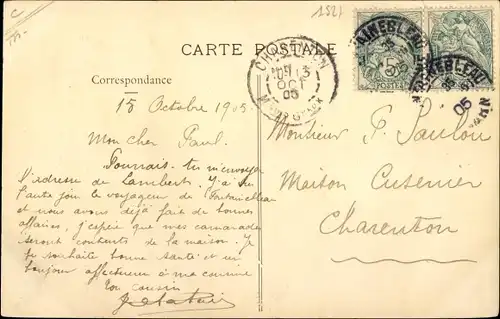 1521
CARTE POSTALE
Correspondance
15 Octobre 1905
Mon cher Paul.
Pourrais-tu m'envoyer
l'adresse de Lambert. J'ai
l'autre jour le voyageur de Fontainebleau
et nous avons déjà fait de bonnes
affaires, j'espère que mes camarades
seront contents de la maison. Je
te souhaite bonne santé et un
bonjour affectueux à ma cousine
ton cousin
Monsieur P.
Maison Cusenier
Charenton
CHARENTON
OCT
05
FONTAINEBLEAU
5
POSTES
FONTAINEBLEAU
05